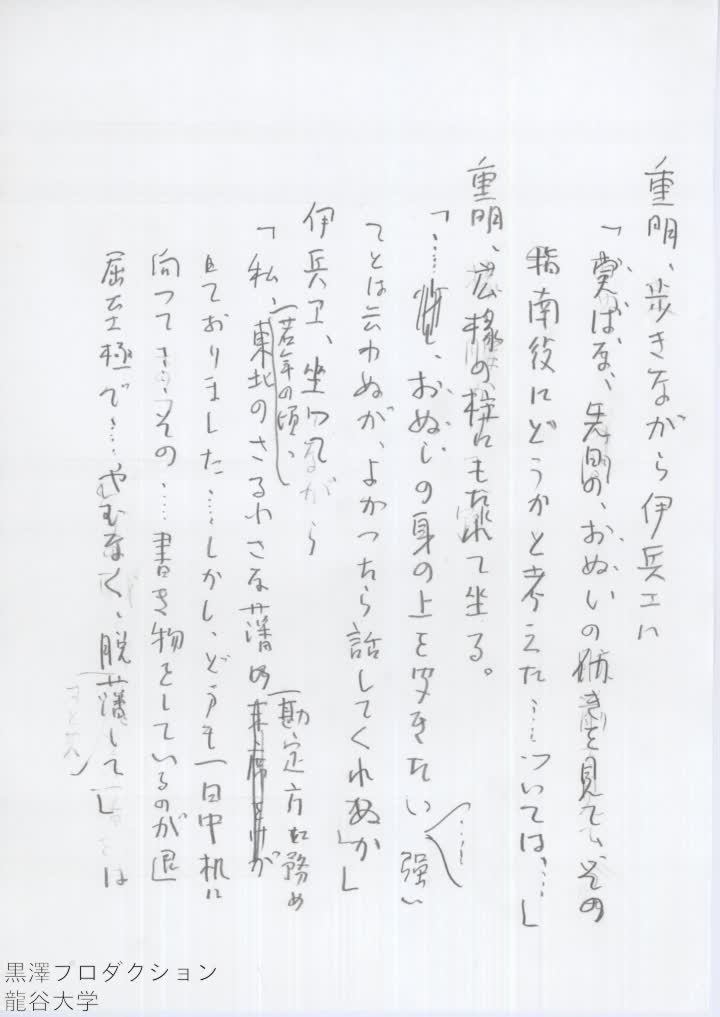 重明、歩きながら伊兵エに
「実はな、先日の、おぬしの働きを見て、その
指南役にどうかと考えた……ついては、…」
重明、広縁の柱にもたれて坐る。
「……、おぬしの身の上を聞きたい……強い
てとは云わぬが、よかったら話してくれぬか」
伊兵エ、坐りながら
「私、若年の頃、東北のさる小さな藩の勘定方を務め
ておりました……しかし、どうも一日中机に
向って……その……書き物をしているのが退
屈至極で……やむなく、脱藩して」は
黒澤プロダクション
龍谷大学